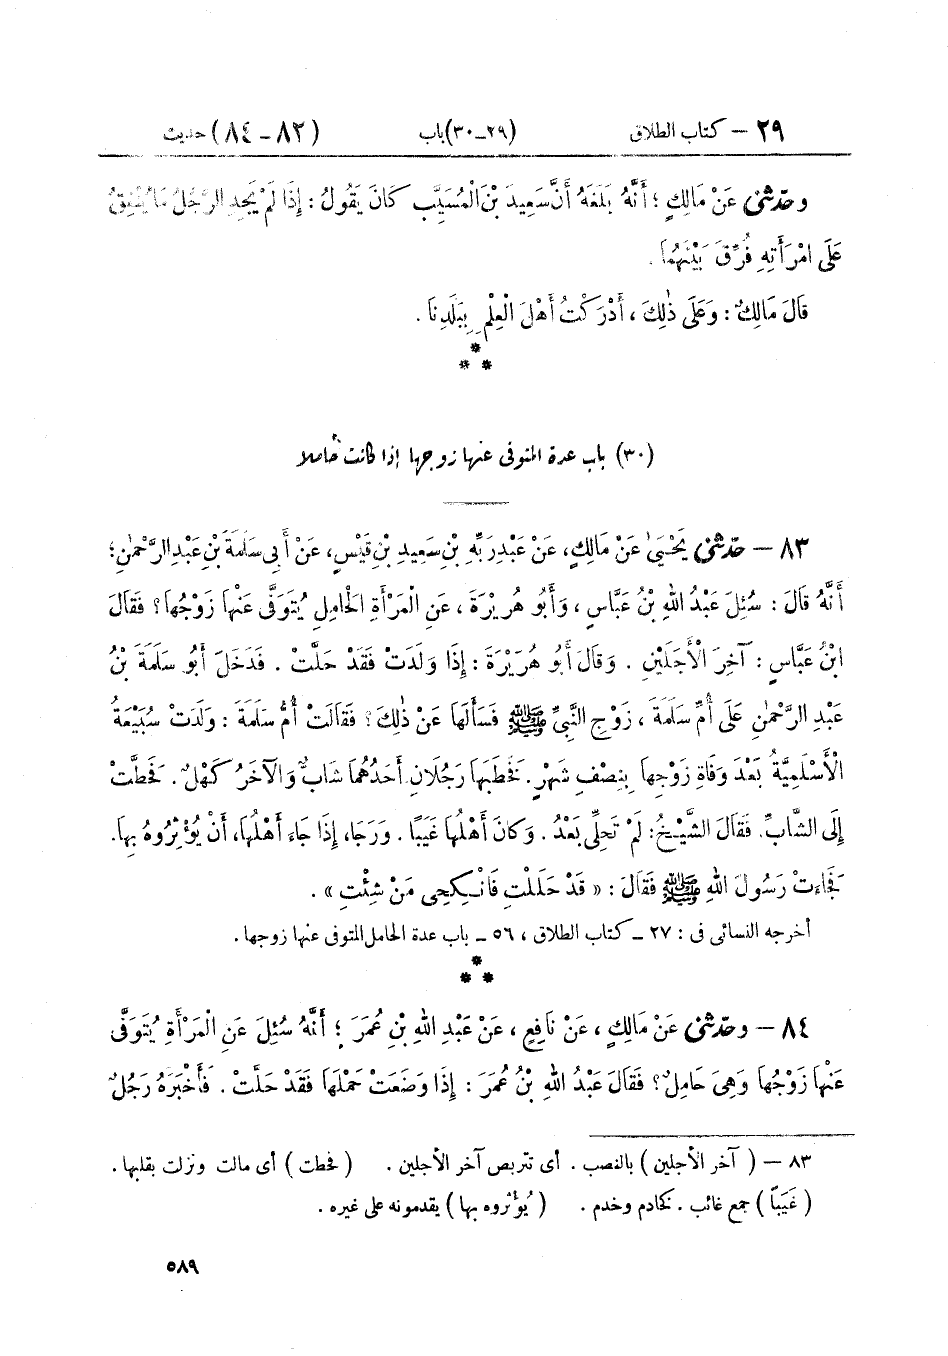 ٢٩ – كتاب الطلاق (٢٩-٣٠) باب (٨٢ - ٨٤) حديث
وحَدَّثَنِى عَنْ مَالِكٍ ؛ أَنَّهُ بَلَغَهُ أَنَّ سَعِيدَ بْنَ الْمُسَيَّبِ كَانَ يَقُولُ : إِذَا لَمْ يَجِدِ الرَّجُلُ مَا يُنْفِقُ
عَلَى امْرَأَتِهِ فُرِّقَ بَيْنَهُمَا .
قَالَ مَالِكٌ : وَعَلَى ذٰلِكَ ، أَدْرَكْتُ أَهْلَ الْعِلْمِ بِبَلَدِنَا .
*
* *
(٣٠) باب عدة المتوفى عنها زوجها إذا كانت حاملا
٨٣ – حَدَّثَنِى يَحْيَىٰ عَنْ مَالِكٍ، عَنْ عَبْدِ رَبِّهِ بْنِ سَعِيدِ بْنِ قَيْسٍ، عَنْ أَبِى سَلَمَةَ بْنِ عَبْدِ الرَّحْمٰنِ ؛
أَنَّهُ قَالَ : سُئِلَ عَبْدُ اللهِ بْنُ عَبَّاسٍ ، وَأَبُو هُرَيْرَةَ ، عَنِ الْمَرْأَةِ الْحَامِلِ يُتَوَفَّى عَنْهَا زَوْجُهَا ؟ فَقَالَ
ابْنُ عَبَّاسٍ : آخِرَ الْأَجَلَيْنِ . وَقَالَ أَبُو هُرَيْرَةَ : إِذَا وَلَدَتْ فَقَدْ حَلَّتْ . فَدَخَلَ أَبُو سَلَمَةَ بْنُ
عَبْدِ الرَّحْمٰنِ عَلَى أُمِّ سَلَمَةَ ، زَوْجِ النَّبِىِّ ﷺ فَسَأَلَهَا عَنْ ذٰلِكَ ؟ فَقَالَتْ أُمُّ سَلَمَةَ : وَلَدَتْ سُبَيْعَةُ
الْأَسْلَمِيَّةُ بَعْدَ وَفَاةِ زَوْجِهَا بِنِصْفِ شَهْرٍ . فَخَطَبَهَا رَجُلَانِ أَحَدُهُمَا شَابٌّ وَالْآخَرُ كَهْلٌ . فَحَطَّتْ
إِلَى الشَّابِّ. فَقَالَ الشَّيْخُ : لَمْ تَحِلِّى بَعْدُ . وَكَانَ أَهْلُهَا غَيَبًا . وَرَجَا، إِذَا جَاءَ أَهْلُهَا، أَنْ يُؤْثِرُوهُ بِهَا.
فَجَاءَتْ رَسُولَ اللهِ ﷺ فَقَالَ : « قَدْ حَلَلْتِ فَانْكِحِى مَنْ شِئْتِ » .
أخرجه النسائى فى : ٢٧ – كتاب الطلاق ، ٥٦ – باب عدة الحامل المتوفى عنها زوجها .
*
* *
٨٤ – وحَدَّثَنِى عَنْ مَالِكٍ ، عَنْ نَافِعٍ ، عَنْ عَبْدِ اللهِ بْنِ عُمَرَ ؛ أَنَّهُ سُئِلَ عَنِ الْمَرْأَةِ يُتَوَفَّى
عَنْهَا زَوْجُهَا وَهِىَ حَامِلٌ ؟ فَقَالَ عَبْدُ اللهِ بْنُ عُمَرَ : إِذَا وَضَعَتْ حَمْلَهَا فَقَدْ حَلَّتْ . فَأَخْبَرَهُ رَجُلٌ
٨٣ – ( آخر الأجلين ) بالنصب . أى تتربص آخر الأجلين . ( فحطت ) أى مالت ونزلت بقلبها .
( غَيَبًا ) جمع غائب . كخادم وخدم . ( يُؤْثروه بها ) يقدمونه على غيره .
٥٨٩